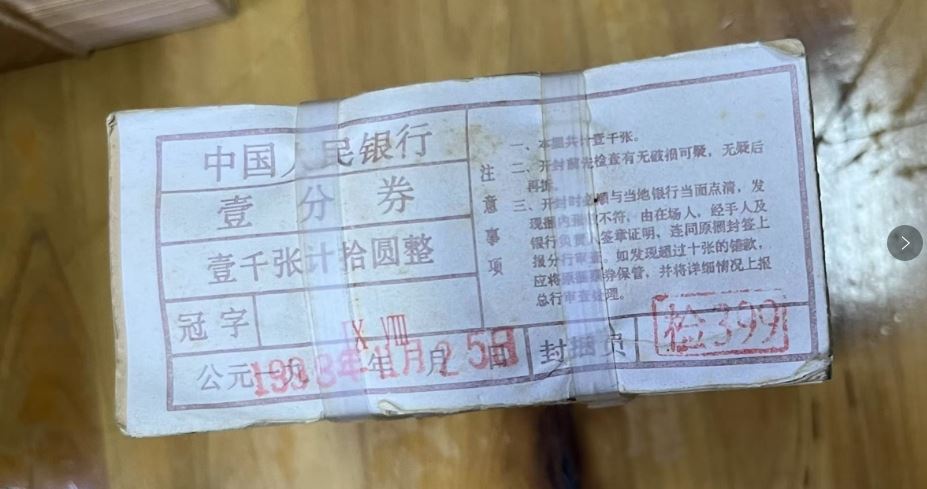 中国人民银行
壹分券
壹千张计拾圆整
冠字
IX VIII
公元一九 年 月 日
1993年11月25日
注意事项
一、本捆共计壹千张。
二、开封前先检查有无破损可疑，无疑后
再拆。
三、开封时必须与当地银行当面点清，发
现捆内张数不符，由在场人、经手人及
银行负责人签章证明，连同原捆封签上
报分行审查。如发现超过十张的错款，
应将原捆票券保管，并将详细情况上报
总行审查处理。
封捆员
检399